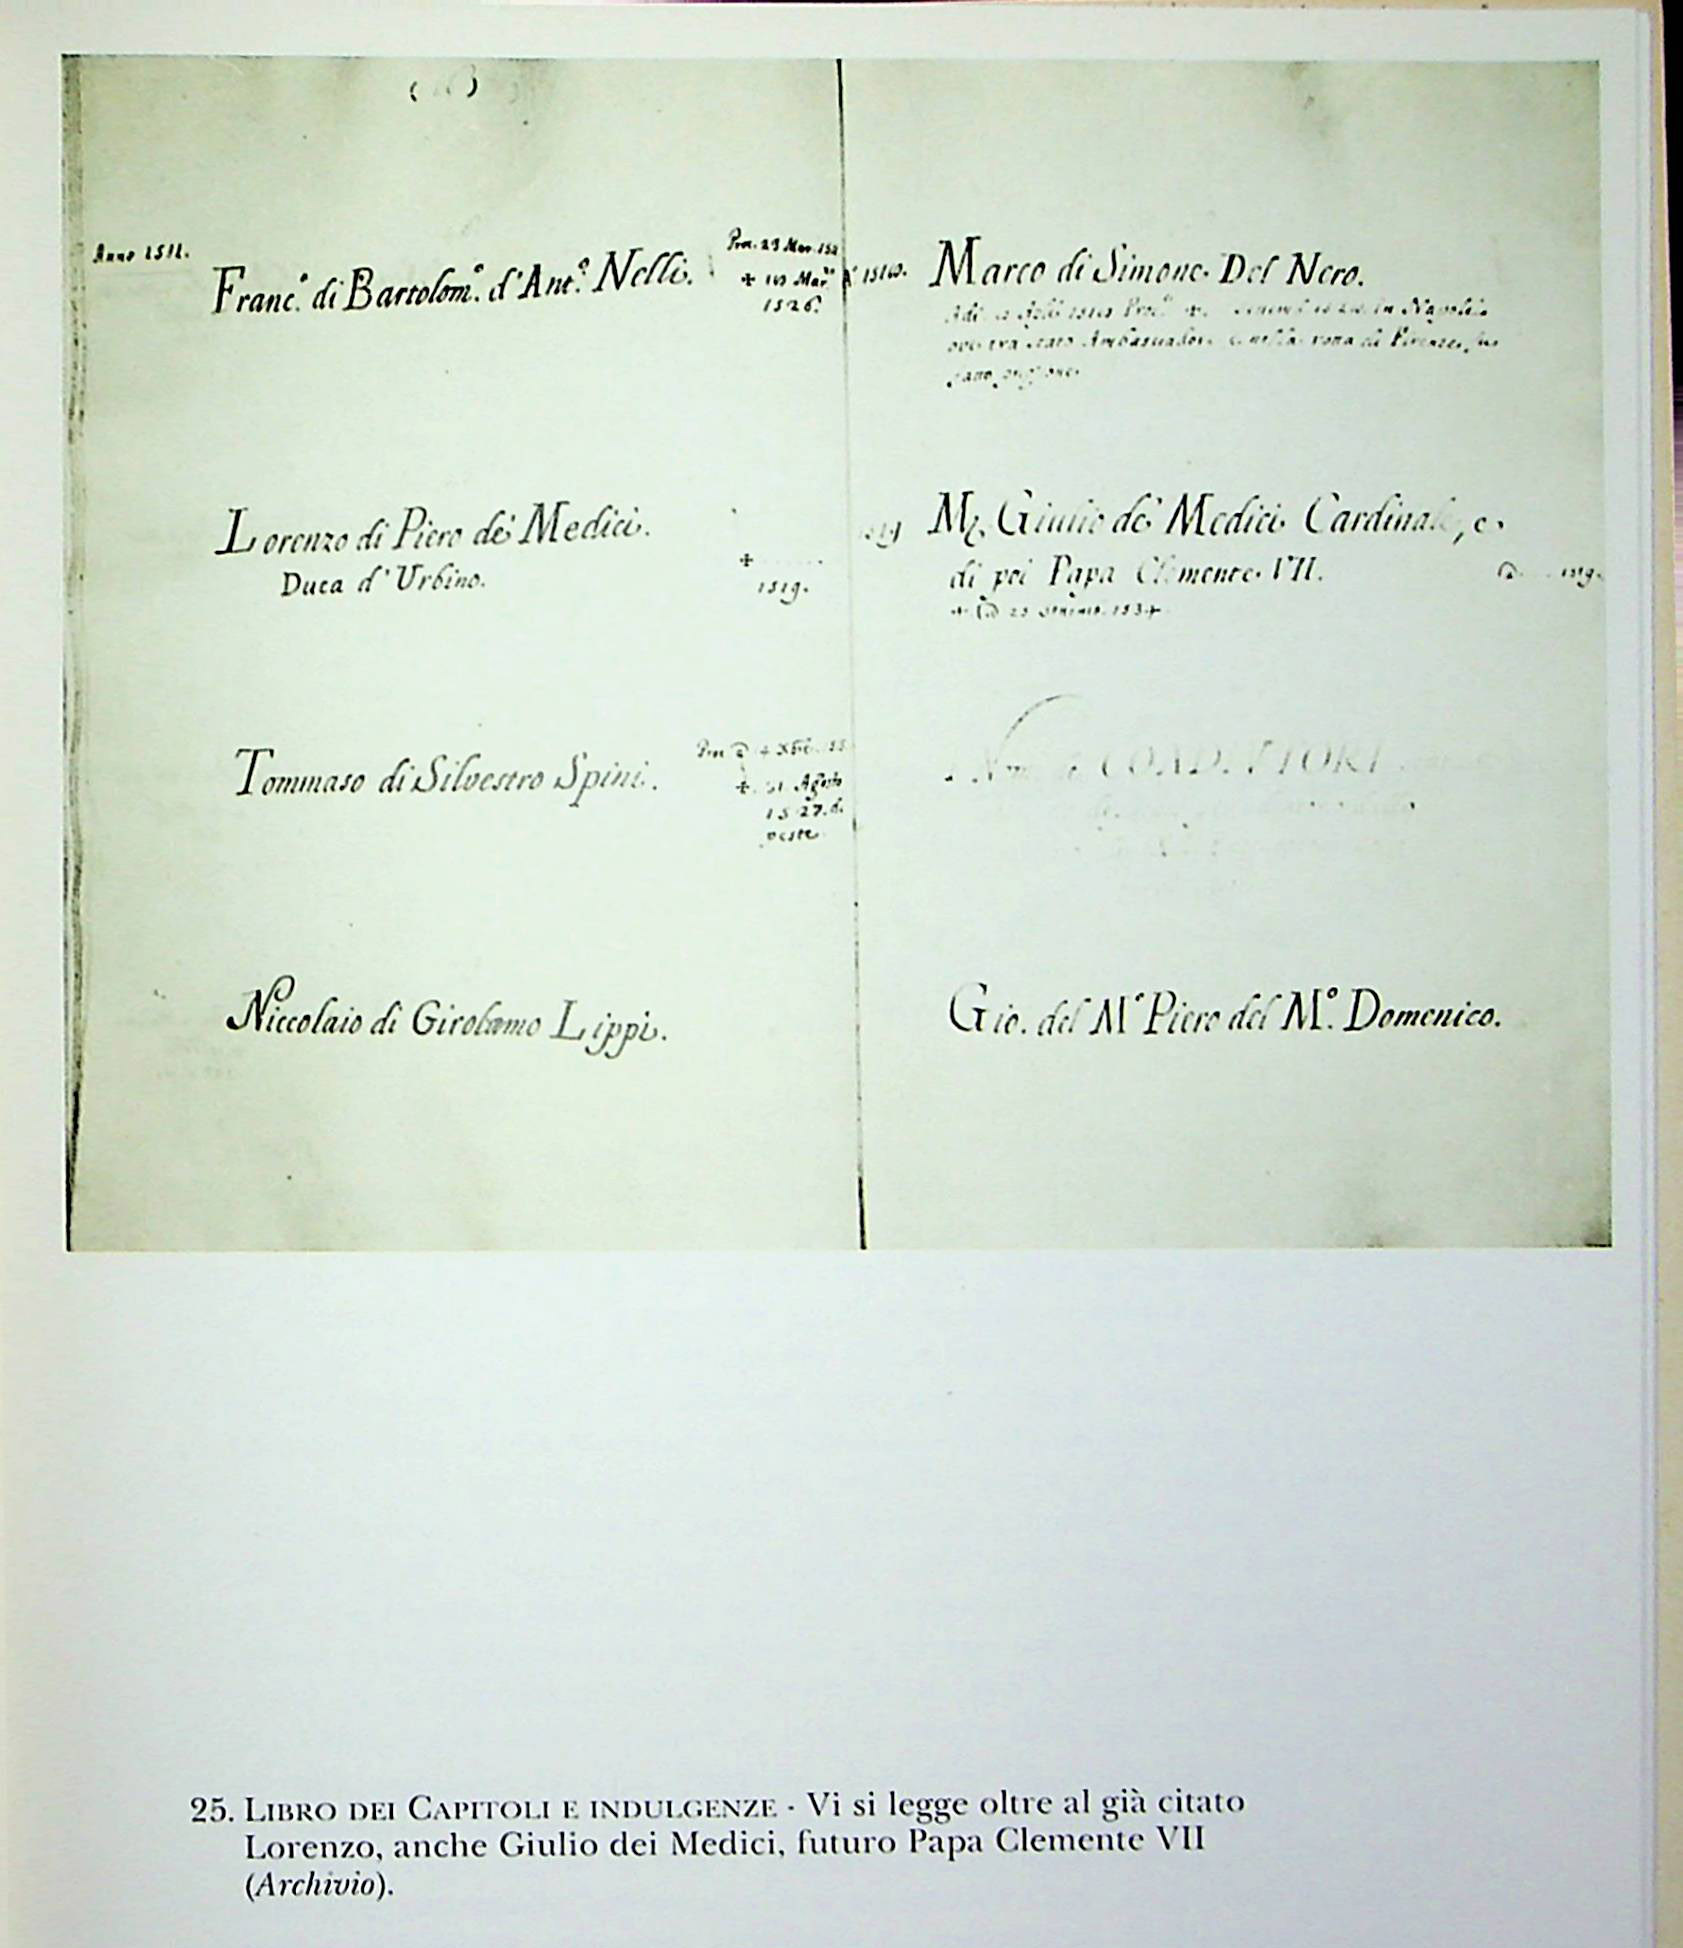 Anno 1511.
Franc.º di Bartolom.º d'Ant.º Nelli.
Pro. 23 Mar. 152
+ 10 Mar.
1526.
Lorenzo di Piero de' Medici.
Duca d'Urbino.
+
1519.
Tommaso di Silvestro Spini.
+ 31 Agosto
1527. di
peste
Niccolaio di Girolamo Lippi.
Marco di Simone Del Nero.
in Napoli
ove era stato Ambasciadore e nella di Firenze
M. Giulio de' Medici Cardinale, e
di poi Papa Clemente VII.
1519.
25 1534
Gio. del Mº Piero del Mº. Domenico.
25. LIBRO DEI CAPITOLI E INDULGENZE - Vi si legge oltre al già citato
Lorenzo, anche Giulio dei Medici, futuro Papa Clemente VII
(Archivio).